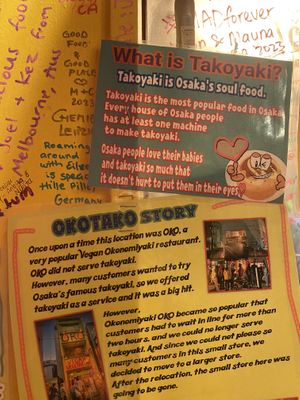 What is Takoyaki?
Takoyaki is Osaka's soul food.
Takoyaki is the most popular food in Osaka
Every house of Osaka people
has at least one machine
to make takoyaki.
Osaka people love their babies
and takoyaki so much that
it doesn't hurt to put them in their eyes
OKOTAKO STORY
Once upon a time this location was OKO, a
very popular Vegan Okonomiyaki restaurant.
OKO did not serve takoyaki.
However, many customers wanted to try
Osaka's famous takoyaki, so we offered
takoyaki as a service and it was a big hit.
However,
Okonomiyaki OKO became so popular that
customers had to wait in line for more than
two hours, and we could no longer serve
takoyaki. And since we could not please so
many customers in this small store, we
decided to move to a larger store.
After the relocation, the small store here was
going to be gone.
OKO
CA
GOOD
FOOD
&
GOOD
PLACE
M+C
2023
Joel + Kez from
Melbourne,
Roaming
around
with Eileen
is special
Hille
Germany
forever
2023